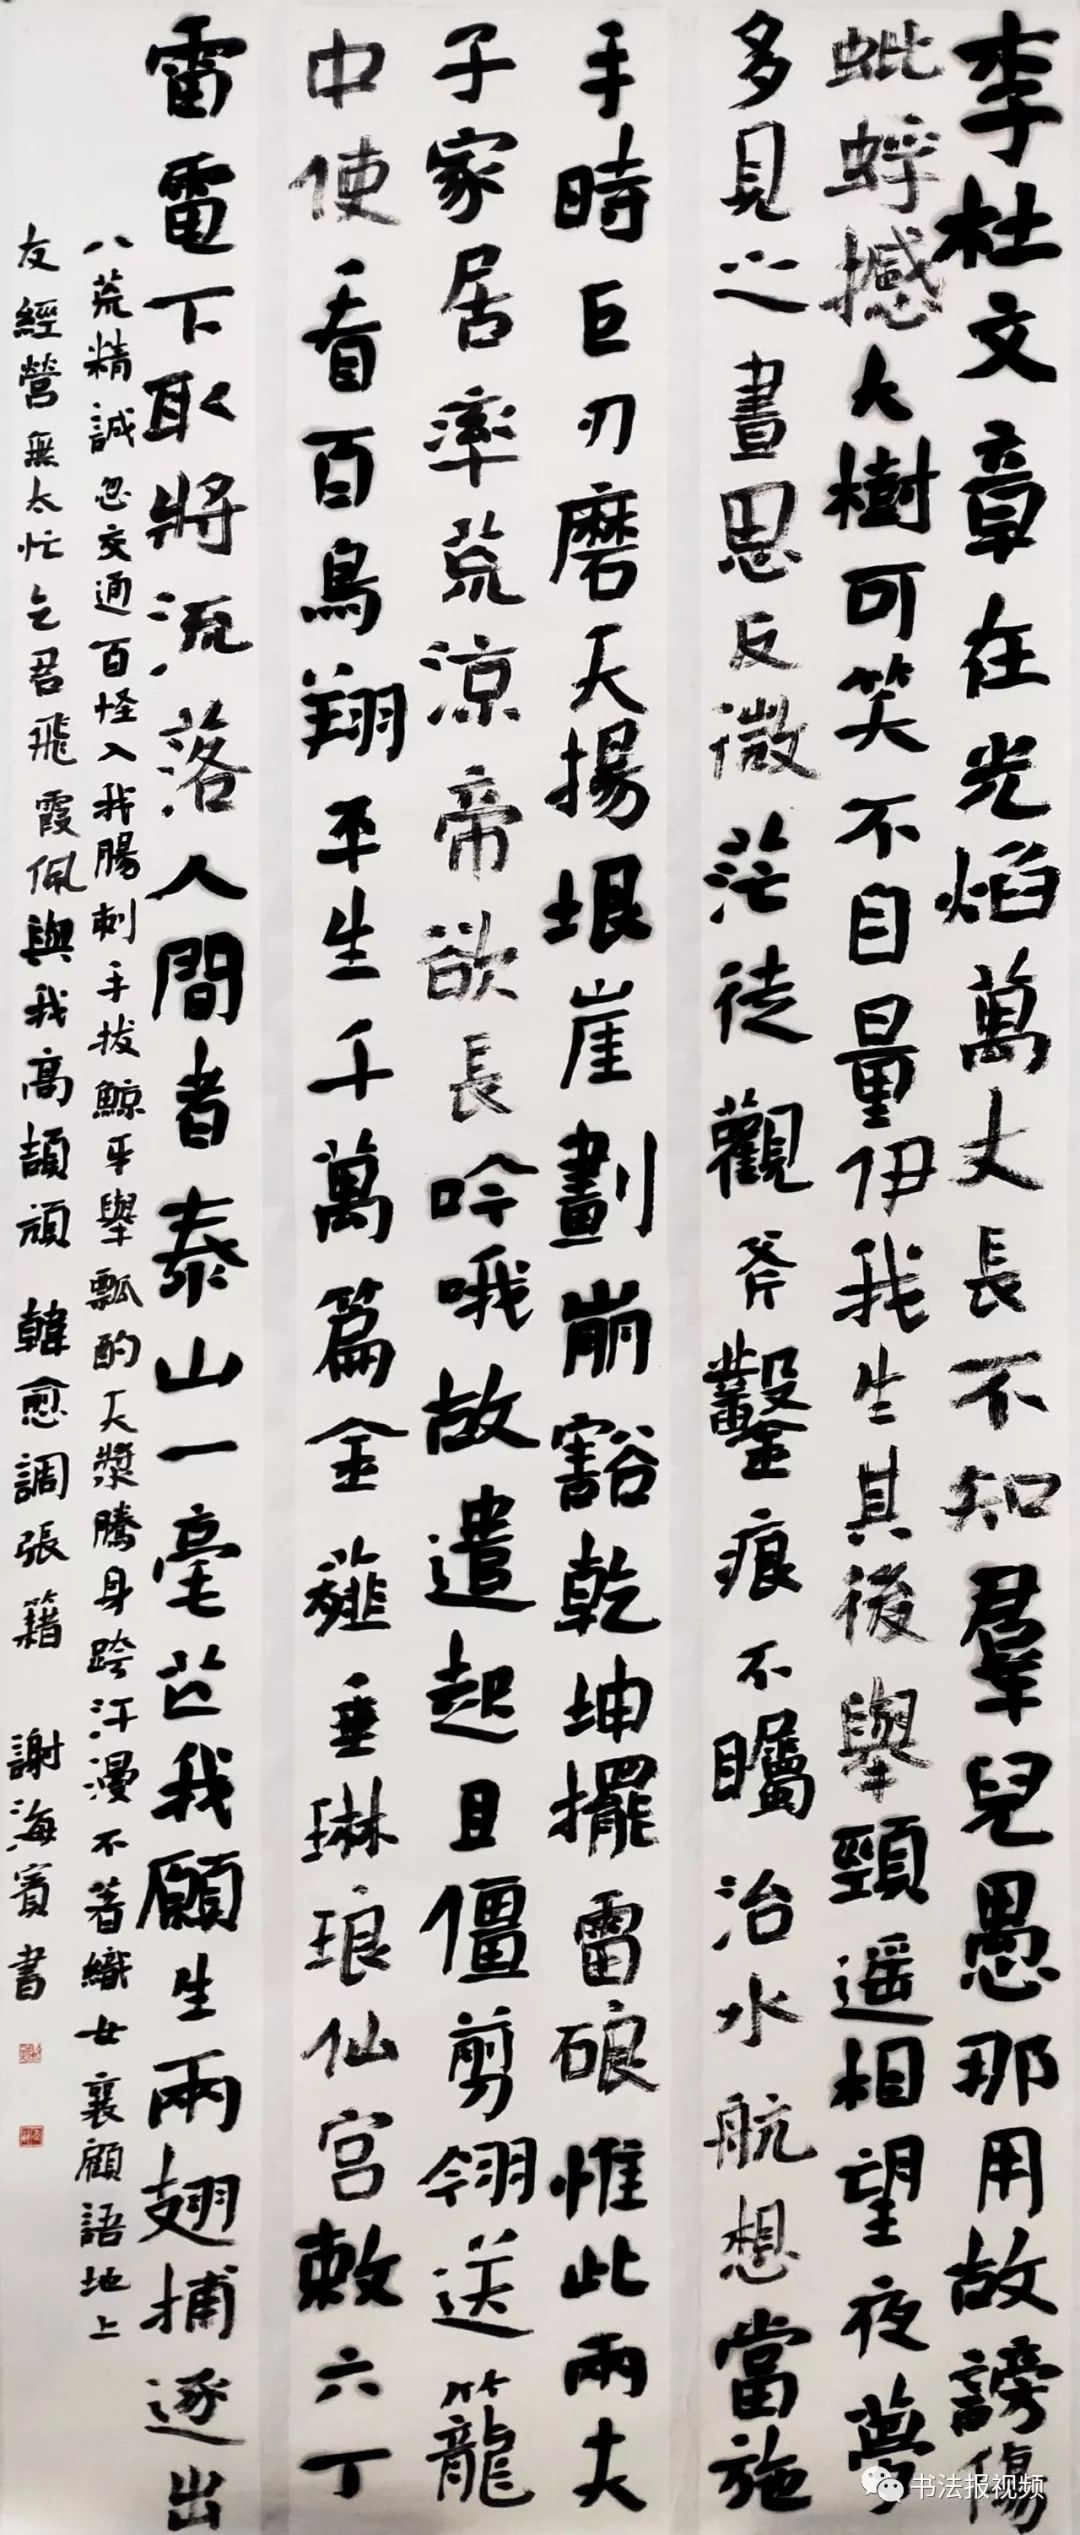 李杜文章在光焰萬丈長不知羣兒愚那用故謗傷
蚍蜉撼大樹可笑不自量伊我生其後舉頸遥相望夜夢
多見之晝思反微茫徒觀斧鑿痕不矚治水航想當施
手時巨刃磨天揚垠崖劃崩豁乾坤擺雷硠惟此兩夫
子家居率荒涼帝欲長吟哦故遣起且僵剪翎送籠
中使看百鳥翔平生千萬篇金薤垂琳琅仙宫敕六丁
雷電下取將流落人間者泰山一毫芒我願生兩翅捕逐出
八荒精誠忽交通百怪入我腸刺手拔鯨牙舉瓢酌天漿騰身跨汗漫不著織女襄顧語地上
友經營無太忙乞君飛霞佩與我高頡頏 韓愈調張籍 謝海賓書
书法报视频